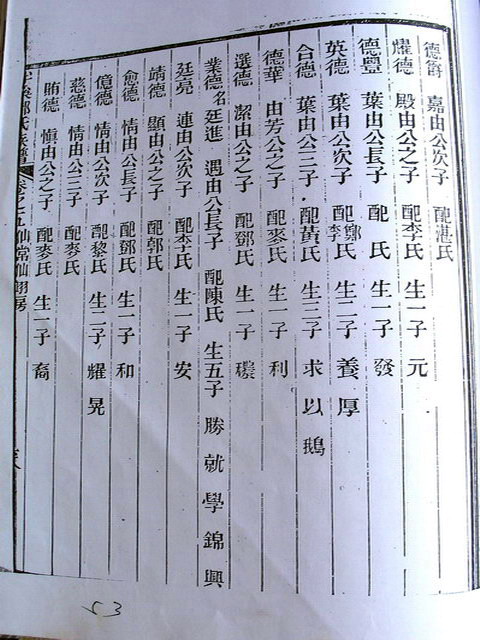 德爵 嘉由公次子 配湛氏
燿德 殿由公之子 配李氏 生一子 元
德豐 葉由公長子 配 氏 生一子 發
英德 葉由公次子 配鄭李氏 生二子 養 厚
合德 葉由公三子 配黃氏 生三子 求 以 鵝
德華 由芳公之子 配麥氏 生一子 利
選德 潔由公之子 配鄧氏 生一子 磯
業德 名廷進 遇由公長子 配陳氏 生五子 勝 就 學 錦 興
廷亮 連由公次子 配李氏 生一子 安
靖德 顯由公之子 配郭氏
愈德 情由公長子 配鄧氏 生一子 和
億德 情由公次子 配黎氏 生二子 燿 晃
慈德 情由公三子 配麥氏
賄德 愼由公之子 配麥氏 生一子 裔
氏族譜 卷之七 仙常仙翮房
53